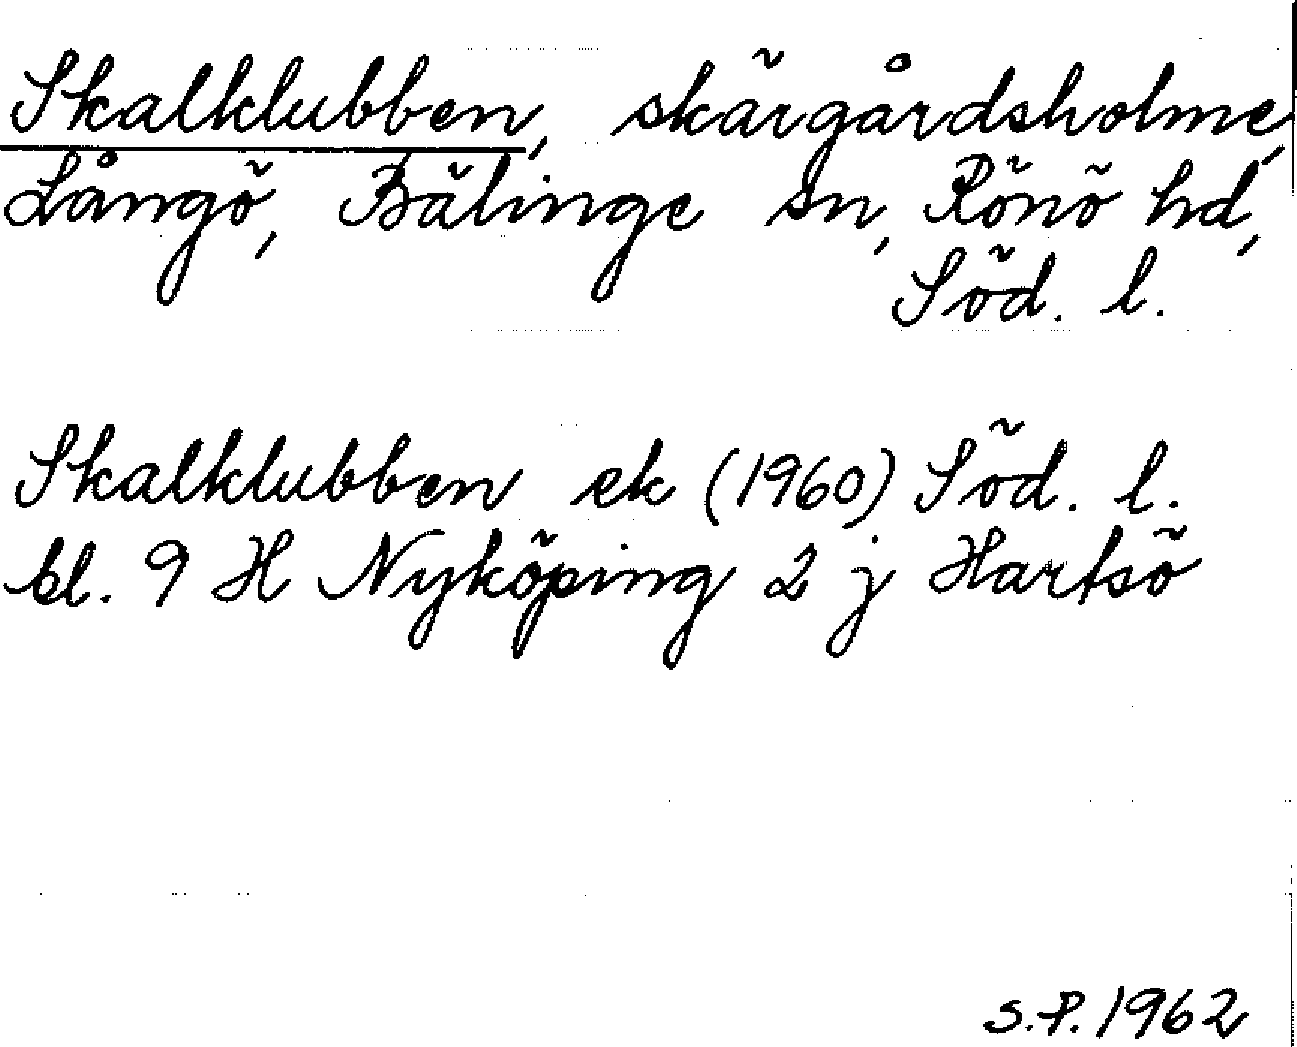 Skalklubben, skärgårdsholme,
Långö, Bälinge sn, Rönö hd,
Söd. l.
Skalklubben ek (1960) Söd. l.
bl. 9 H Nyköping 2 j Hartsö
S.P. 1962